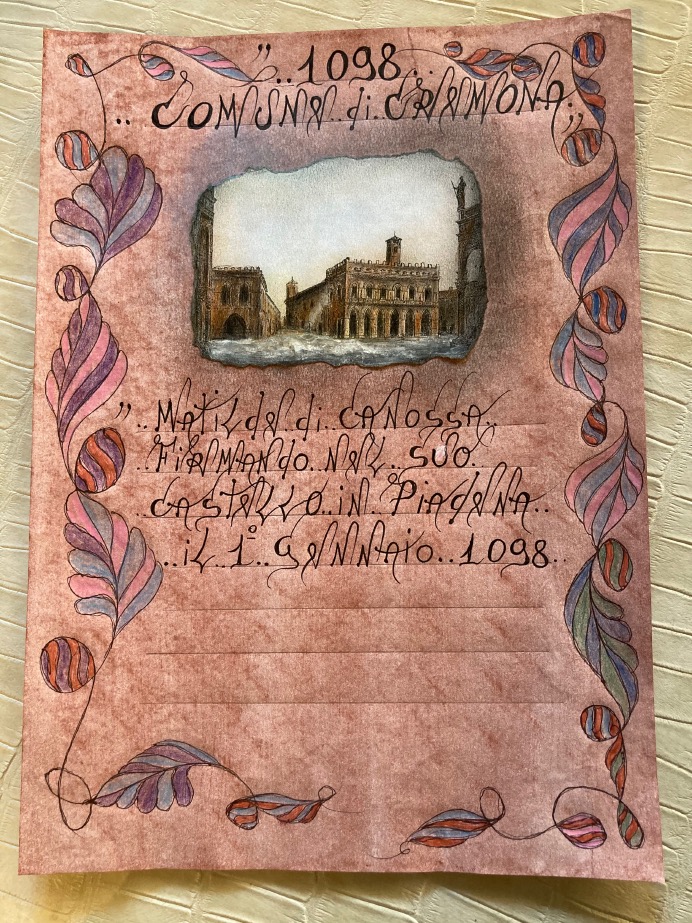 "..1098..
.. COMUNE di CREMONA. "
"..Matilde di CANOSSA..
..FiRMANdo.. NEL.. SUO.
CASTELLO.. iN.. PiAdENA..
..iL 1°.. GENNAio.. 1098..